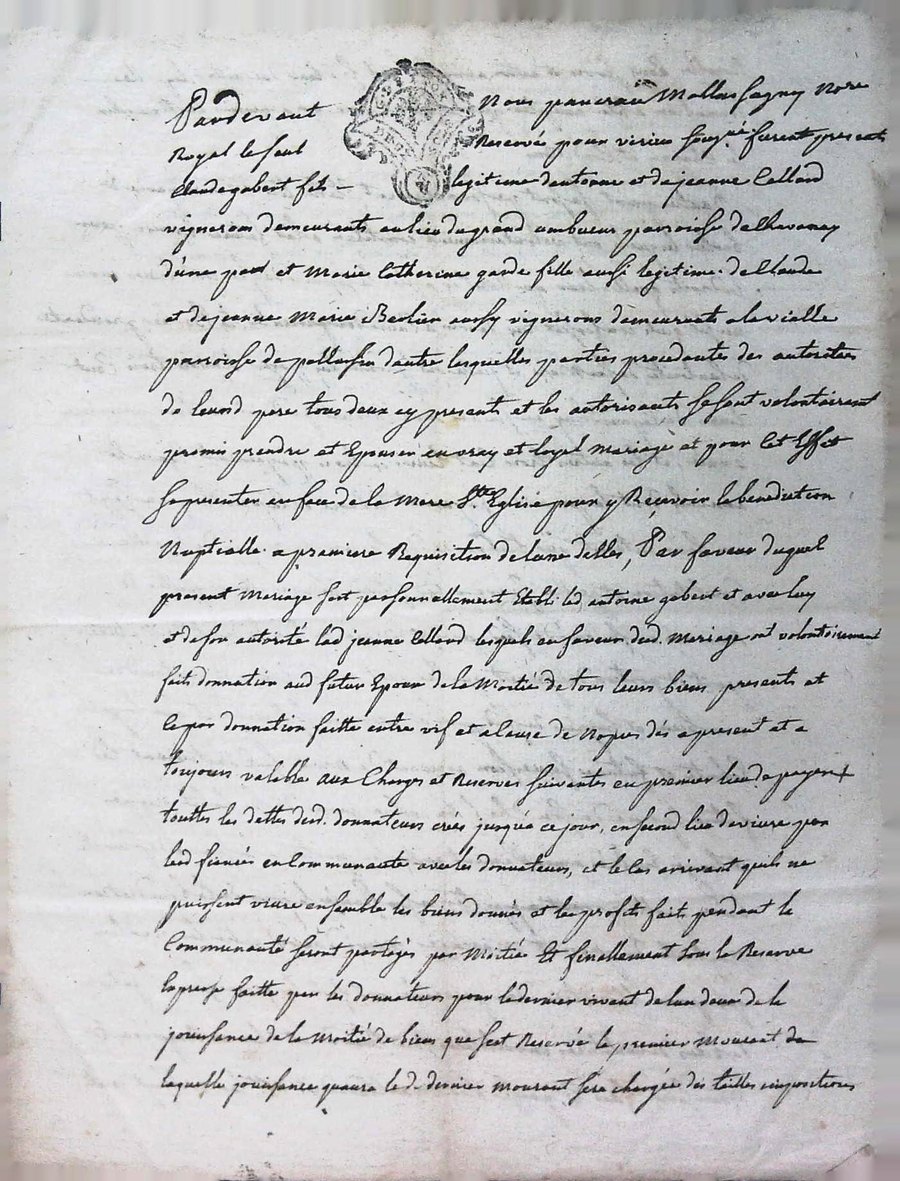 Pardevant Nous pancrace Mallassagny Nore
Royal le seul Reservé pour virieu sousné. furent presents
Claude gabert fils legitime dantoine et de jeanne Collard
vignerons demeurants au lieu du grand ambueux parroisse de Chavanay
d'une part et Marie Catherine garde fille aussi legitime de Claude
et de jeanne Marie Berlier aussy vignerons demeurants a la vialle
parroisse de pellussin dautre lesquelles parties procedantes des autorités
de leursd pere tous deux cy presents et les autorisants se sont volontairemt
promis prendre et Epouser en vray et loyal Mariage et pour Cet Effet
se presenter en face de la Mere Ste. Eglise pour y Recevoir la benediction
Nuptialle a premiere Requisition de lune delles, Par faveur duquel
present Mariage sest personnellement Etabli led antoine gabert et avec luy
et de son autorité lad jeanne Collard lesquels en faveur dud. Mariage ont volontairement
fait donnation aud futur Epoux de la Moitié de tous leurs biens presents et
ce par donnation faitte entre vif et a cause de Nopces dés a present et a
toujours valable aux Charges et Reserves suivantes en premier lieu de payer
touttes les dettes desd. donnateurs créés jusqua ce jour, en second lieu de vivre par
led fiancés en Communauté avec les donnateurs, et le Cas arrivant quils ne
puissent vivre ensemble les biens donnés et les profits faits pendant la
Communauté seront partagés par Moitié Et finallement sous la Reserve
expresse faitte par les donnateurs pour le dernier vivant de lun deux de la
jouissance de la Moitié de biens que sest Reservé le premier Mourant de
laquelle jouissance quaura led. dernier Mourant sera chargée des tailles impositions